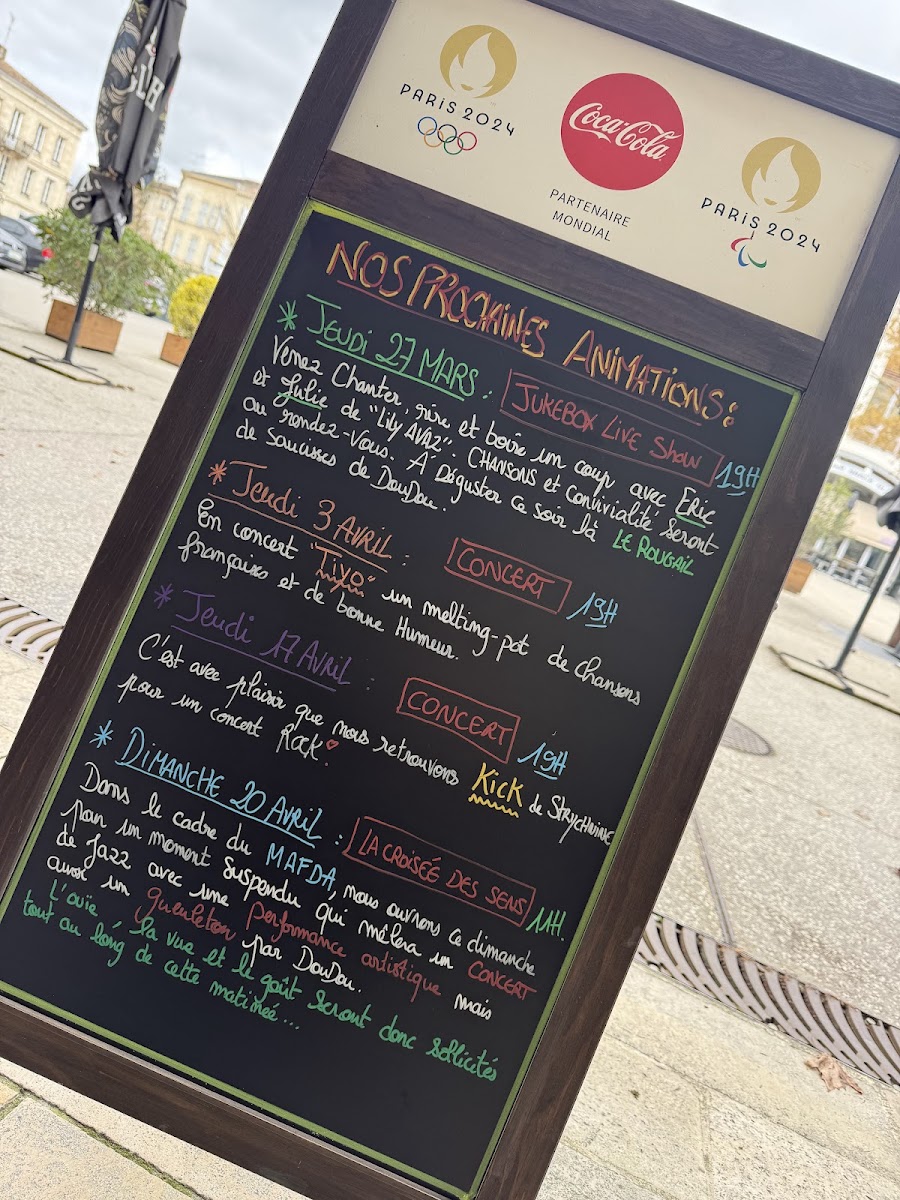 PARIS 2024
Coca-Cola
PARTENAIRE
MONDIAL
PARIS 2024
NOS PROCHAINES ANIMATIONS :
* JEUDI 27 MARS : JUKEBOX LIVE SHOW 19H
Venez Chanter, rire et boire un coup avec ERIC
et Julie de "Lily AVAZ". CHANSONS et Convivialité Seront
au rendez-vous. A Déguster ce soir là LE ROUGAIL
de saucisses de DouDou.
* Jeudi 3 AVRIL : CONCERT 19H
En concert "TiYo" un melting-pot de chansons
françaises et de bonne Humeur.
* Jeudi 17 AVRIL : CONCERT 19H
C'est avec plaisir que nous retrouvons KicK de STRYCHNINE
pour un concert Rock.
* DIMANCHE 20 AVRIL : LA CROISÉE DES SENS 11H.
Dans le cadre du MAFDA, nous ouvrons ce dimanche
pour un moment suspendu qui mêlera un CONCERT
de Jazz avec une performance artistique mais
aussi un gueuleton par DouDou.
L'ouïe, la vue et le goût seront donc sollicités
tout au long de cette matinée...